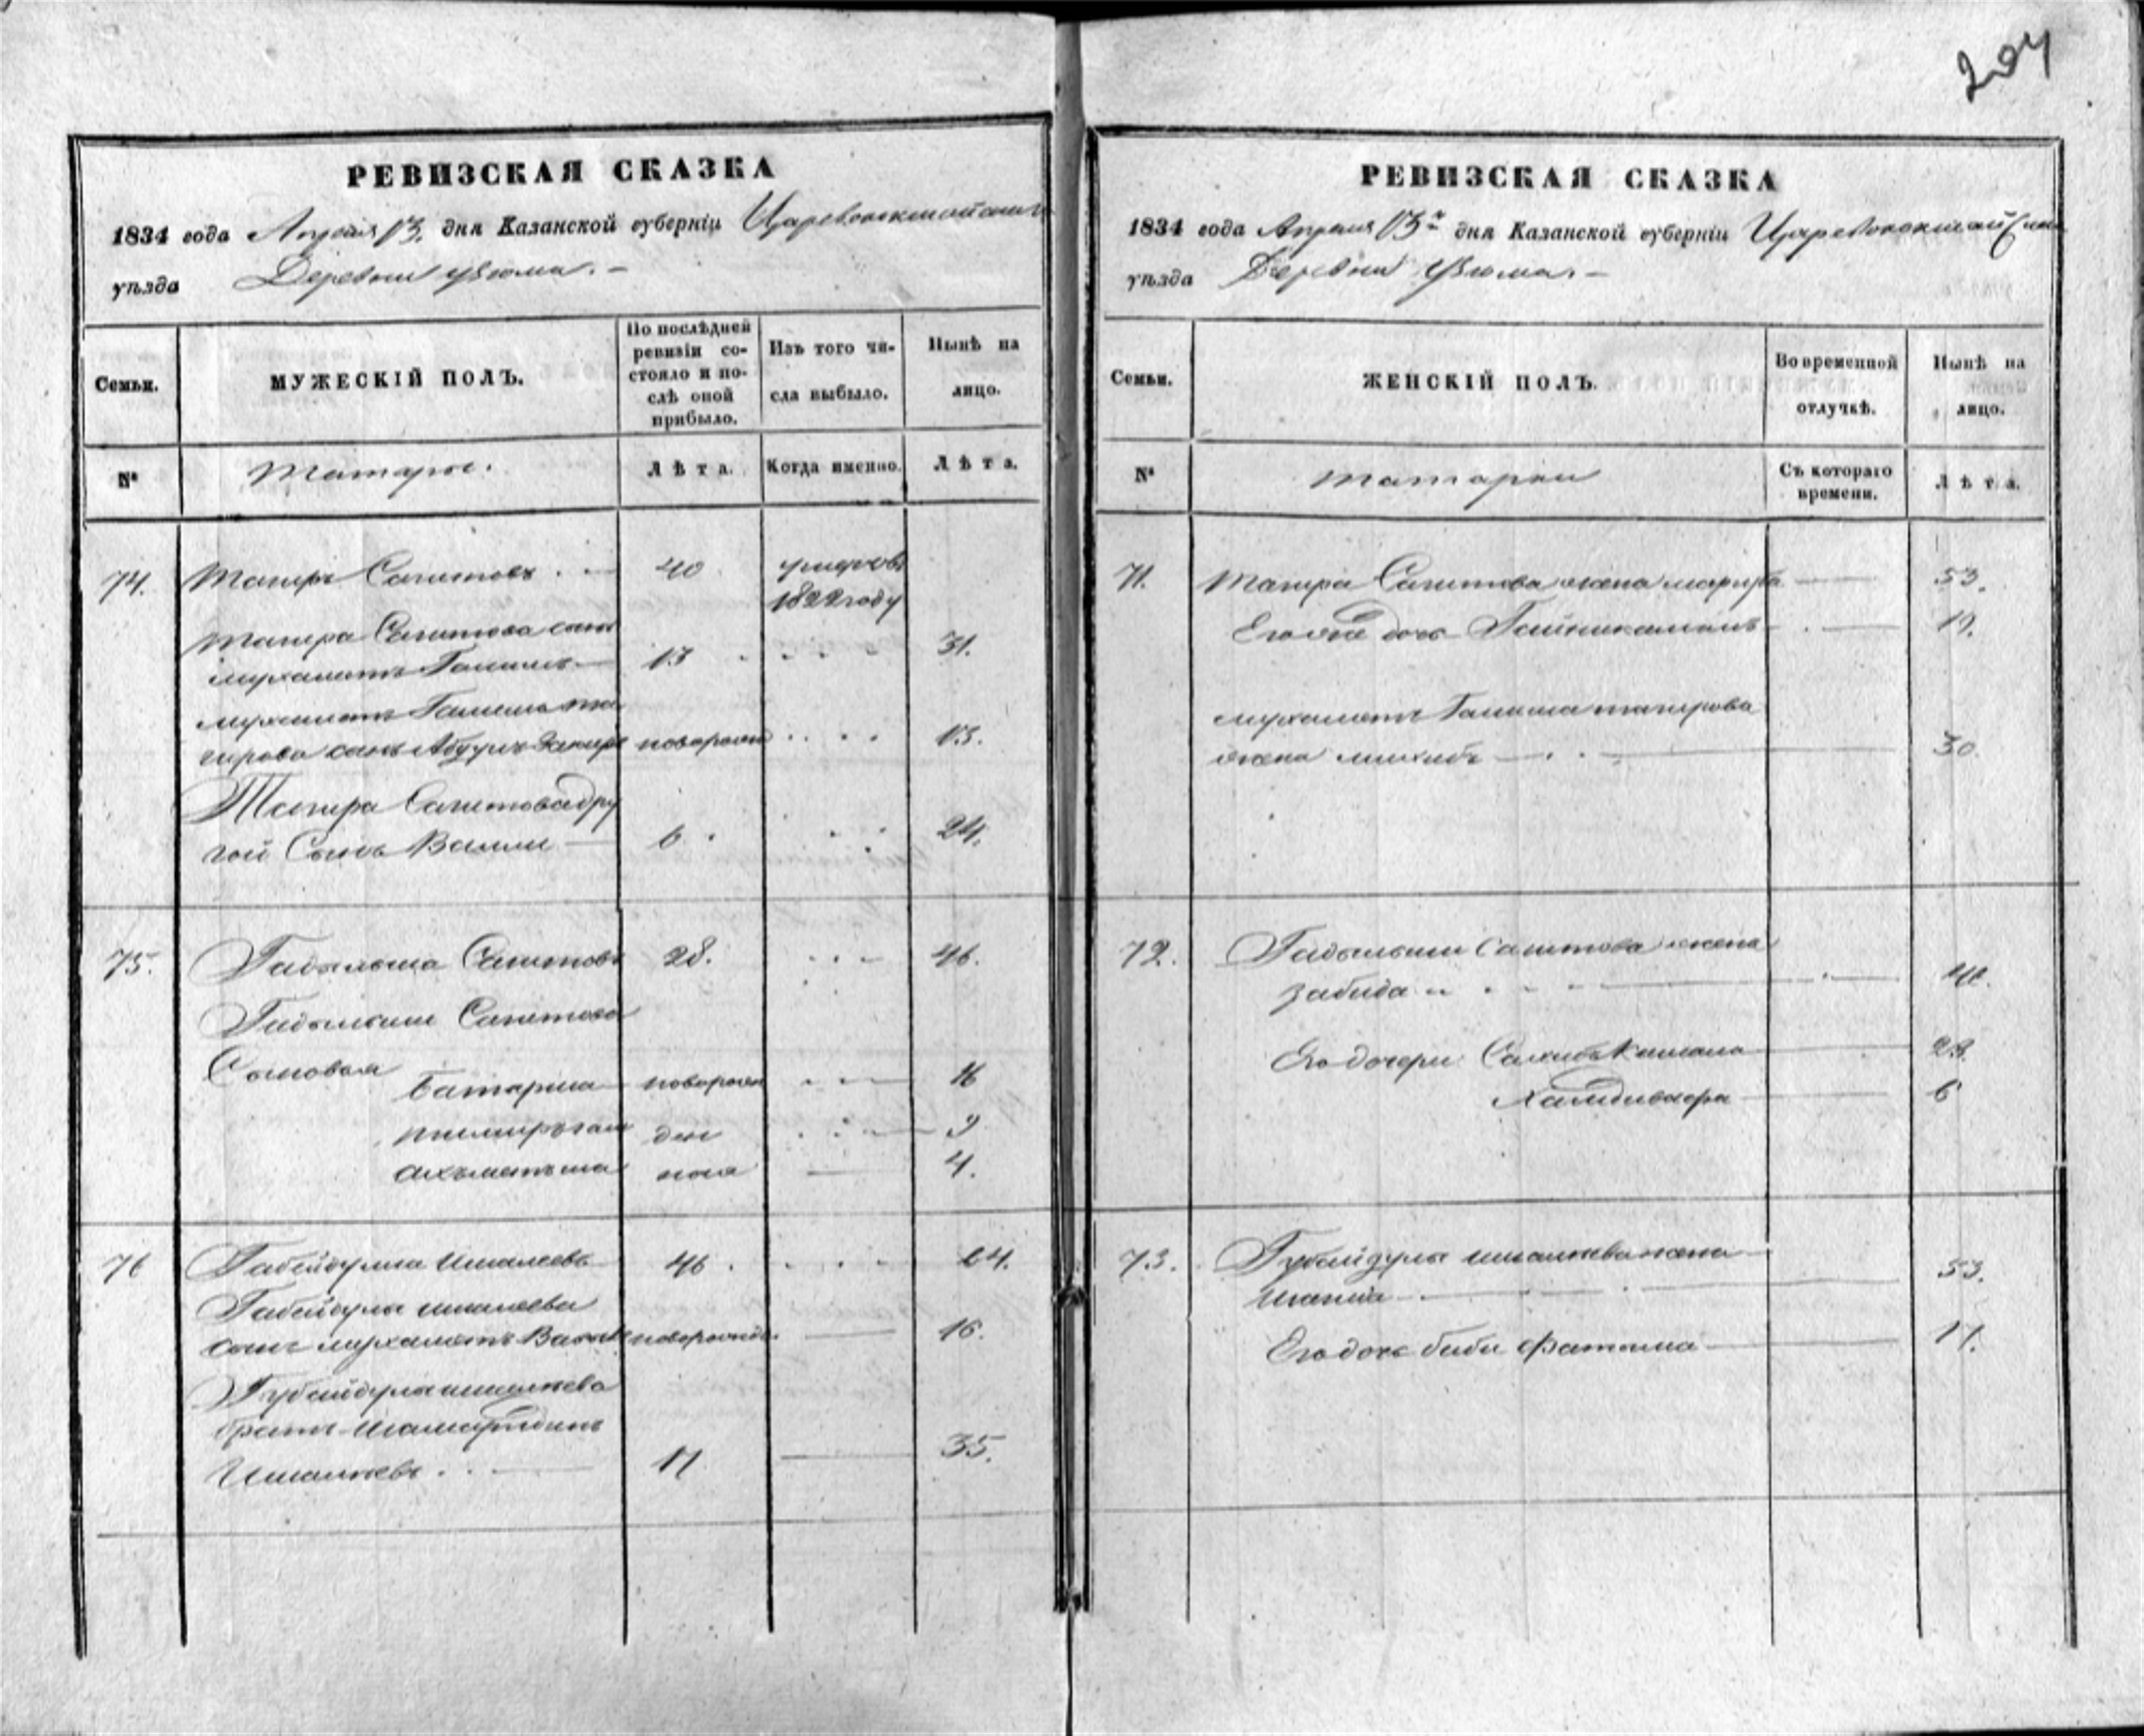 204
РЕВИЗСКАЯ СКАЗКА
1834 года Апреля 13. дня Казанской губерніи Царевококшайскаго
уѣзда Деревни
Семьи.
МУЖЕСКІЙ ПОЛЪ.
По послѣдней ревизіи состояло и послѣ оной прибыло.
Изъ того числа выбыло.
Нынѣ на лицо.
№
Татары.
Лѣта.
Когда именно.
Лѣта.
74. Тагиръ Сагитовъ 40 умеръ въ
1822 году
Тагира Сагитова сынъ
Мухаметъ Галимъ 13 31.
Мухаметъ Галима та
гирова сынъ Абдулъ Закиръ новорожд 13.
Тагира Сагитова дру
гой Сынъ Валли 6 24.
75. Гадыльша Сагитовъ 28. 46.
Гадыльши Сагитова
Сыновья Батарша новорож 16
ден 9
Ахъметьша ная 4.
76 Габейдулла Ишалеевъ 46. 64.
Габейдулы Ишалеева
сынъ Мухаметъ новорожд. 16.
Губайдулы Ишалѣева
братъ
Ишалѣевъ 17 35.
РЕВИЗСКАЯ СКАЗКА
1834 года Апреля 13го дня Казанской губерніи Царевококшайскаго
уѣзда Деревни
Семьи.
ЖЕНСКІЙ ПОЛЪ.
Во временной отлучкѣ.
Нынѣ на лицо.
№
татарки
Съ котораго времени.
Лѣта.
71. Тагира Сагитова жена 53.
Его же дочь 19.
Мухаметъ Галима тагирова
жена 30.
72. Гадыльши Сагитова жена
Забида
Его дочери
6
73. Губайдулы Ишалѣева жена
53.
Его дочь биби Фатыма 17.